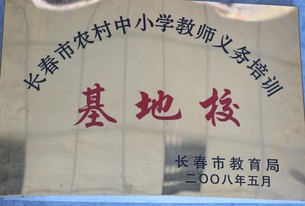 长春市农村中小学教师义务培训
基地校
长春市教育局
二〇〇八年五月